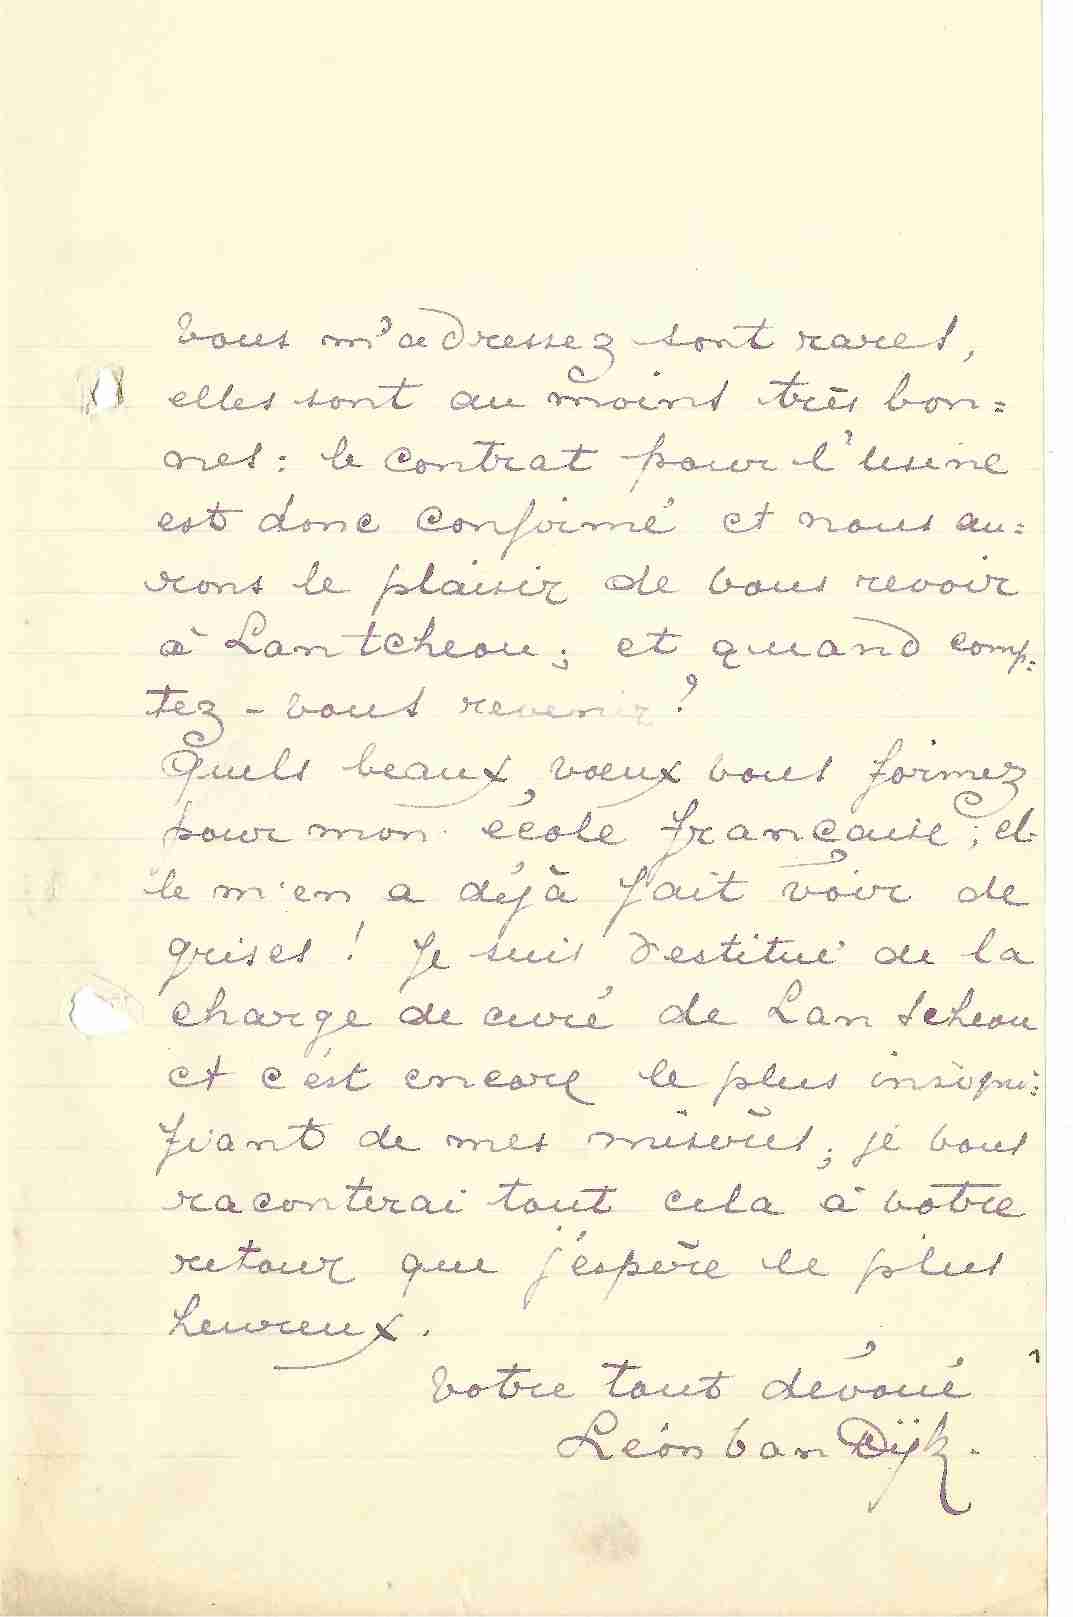 vous m'adressez sont rares,
elles sont au moins très bon=
nes: le contrat pour l'usine
est donc confirmé et nous au=
rons le plaisir de vous revoir
à Lantcheou; et quand comp=
tez-vous revenir?
Quels beaux vœux vous formez
pour mon école française; el-
le m'en a déjà fait voir de
grises! Je suis destitué de la
charge de curé de Lantcheou
et c'est encore le plus insigni=
fiant de mes misères; je vous
raconterai tout cela à votre
retour que j'espère le plus
heureux.
Votre tout dévoué
Léon van Dÿk.